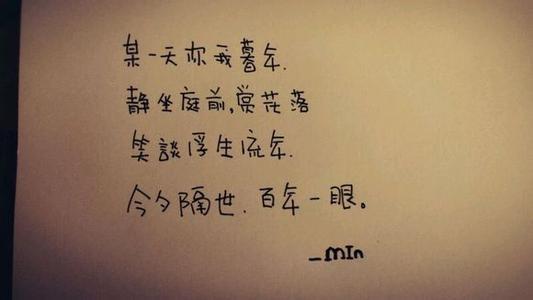 某一天你我暮年.
静坐庭前,赏花落
笑談浮生流年.
今夕隔世.百年一眼。
-mIn